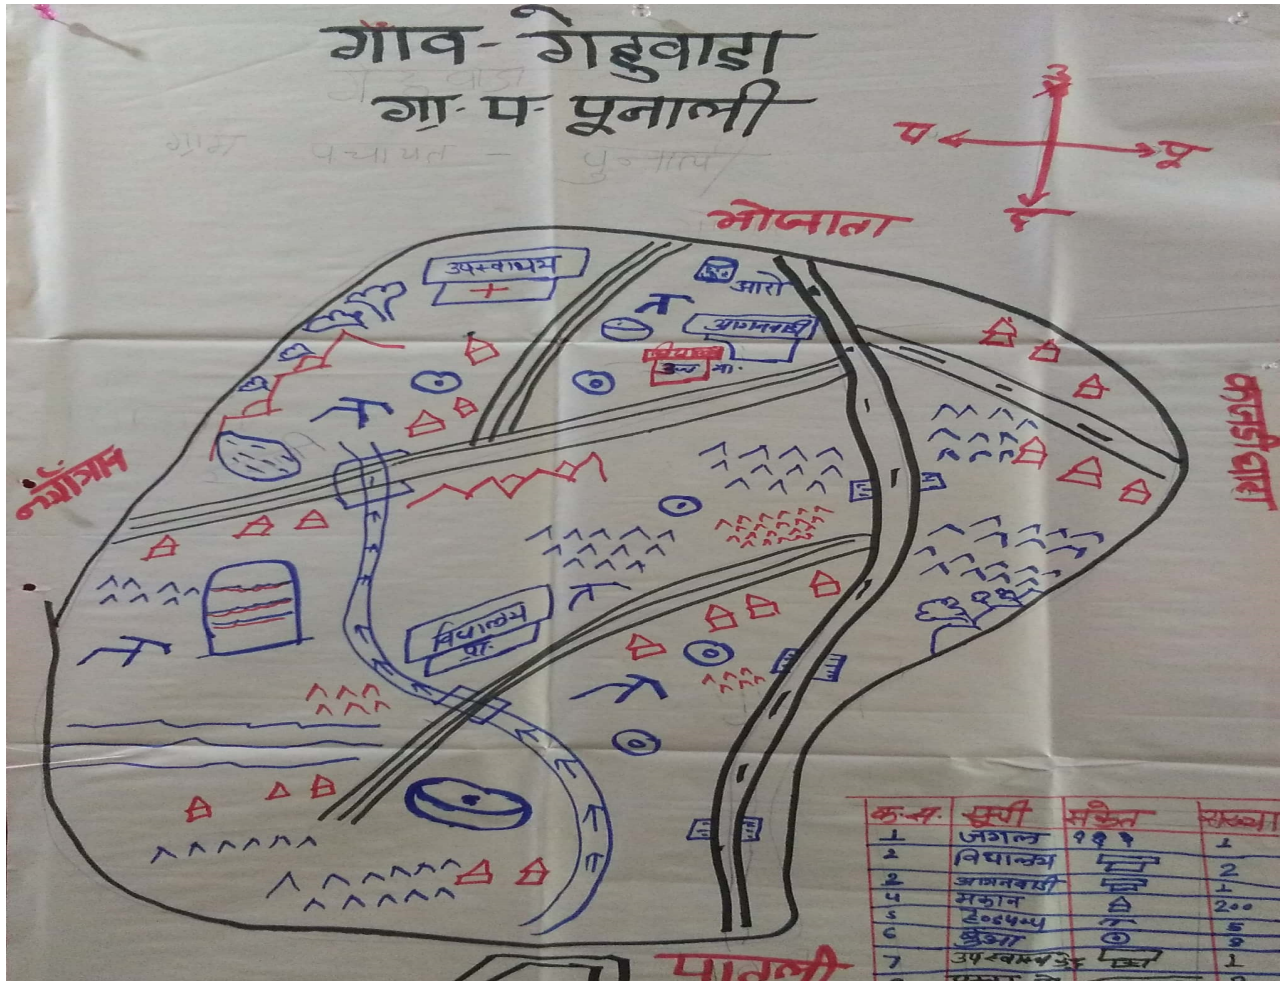 गाँव - गेहुवाडा
गा. प. पूनाली
ग्राम पंचायत - पुनाली
उ
प
पू
द
भोजाता
उपस्वास्थ्य
आरो
आगनवाडी
विद्यालय
उच्च मा.
विद्यालय
प्रा.
पातली
क्र.स. सूची संकेत संख्या
1 जंगल 1
2 विद्यालय 2
3 आगनवाडी 1
4 मकान 200
5 हेण्डपम्प 5
6 कुआ 9
7 उपस्वास्थ्य केन्द्र 1